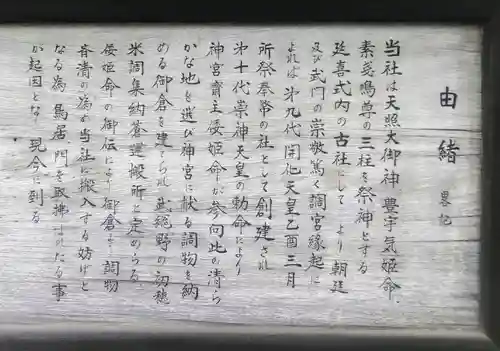 由緒 畧記
当社は天照大御神 豊宇気姫命
素盞嗚尊の三柱を祭神とする
延喜式内の古社にして より 朝廷
及び武門の崇敬篤く調宮縁起に
よれば 第九代 開化天皇乙酉三月
所祭奉幣の社として創建され
第十代崇神天皇の勅命により
神宮斎主倭姫命が参向此の清ら
かな地を選び神宮に献る調物を納
める御倉を建てられ 武総野の初穂
米調集納蒼運搬所と定めらる
倭姫命の御伝により御倉より調物
斉清の為め当社に搬入する妨げと
なる為 鳥居 門を取拂はれたる事
が起因となり現今に到る